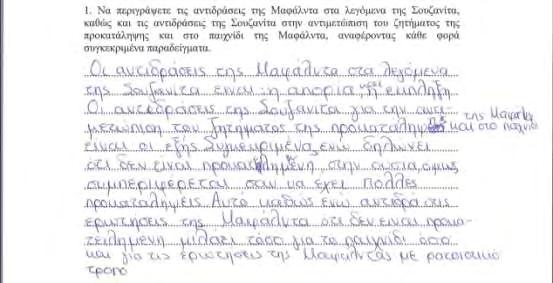 1. Να περιγράψετε τις αντιδράσεις της Μαφάλντα στα λεγόμενα της Σουζανίτα,
καθώς και τις αντιδράσεις της Σουζανίτα στην αντιμετώπιση του ζητήματος της
προκατάληψης και στο παιχνίδι της Μαφάλντα, αναφέροντας κάθε φορά
συγκεκριμένα παραδείγματα.
Οι αντιδράσεις της Μαφάλντα στα λεγόμενα
της Σουζανιτα ειναι :η απορια και η εκπληξη
Οι αντεδράσεις της Σουζανιτα για την αντι-
μετωπιση του ζητηματος της προκαταληψης και στο παιχνιδι της Μαφαλντα
ειναι οι εξής Συγκεκριμένα, ενω δηλωνει
ότι δεν ειναι προκατηλημένη, στην ουσια, όμως
συμπεριφερεται σαν να εχει πολλες
προκαταληψεις. Αυτο καθώς ενω αντιδρα στις
ερωτησεις της Μαφαλντα ότι δεν ειναι προκα-
τειλημενη μιλαει τόσο για το παιχνιδι όσο
και για τις ερωτησεις της Μαφαλντας με ρατσιστικό
τροπο